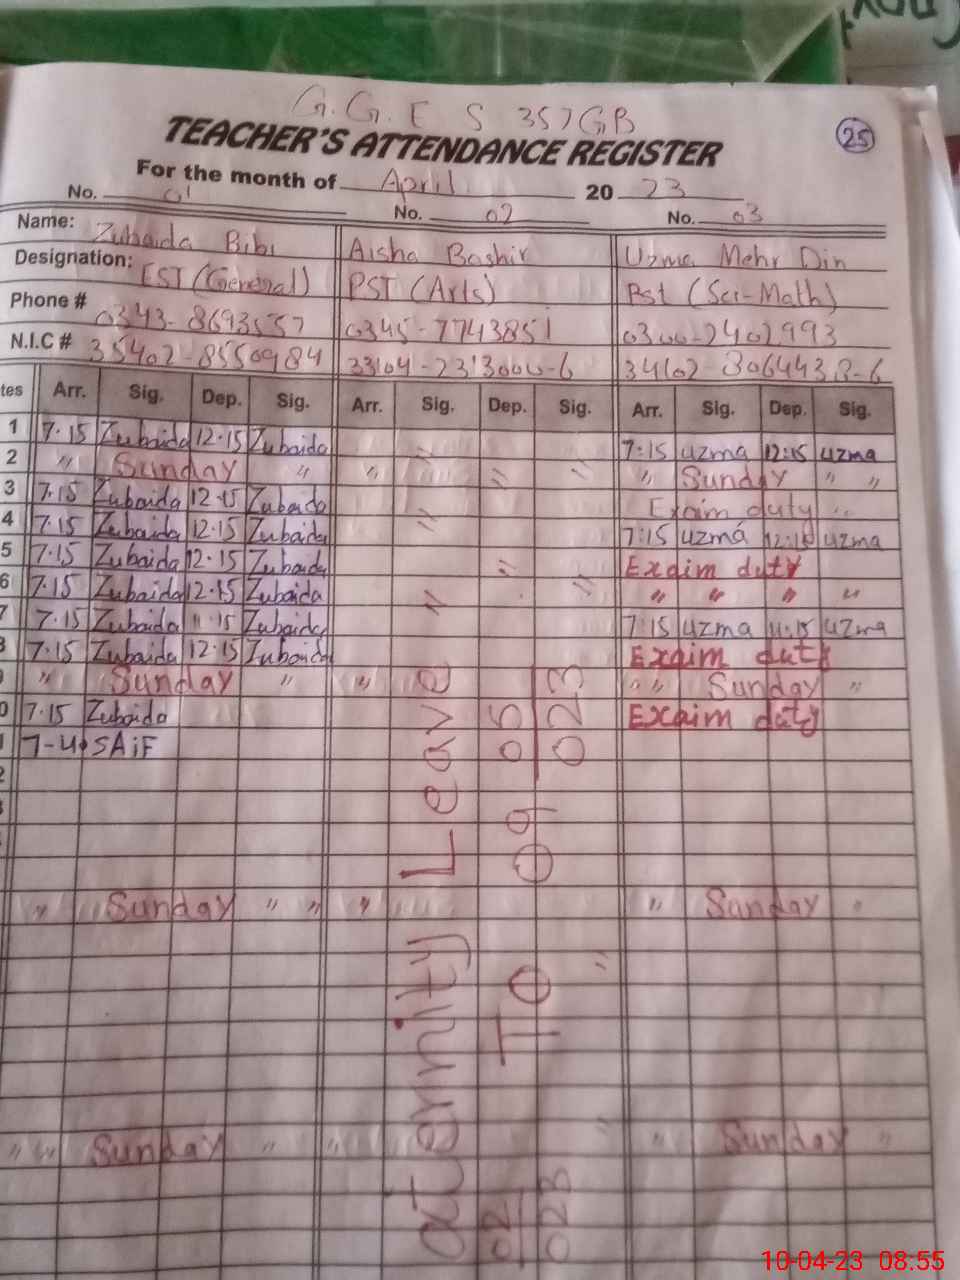 G.G.E S 357GB
25
TEACHER'S ATTENDANCE REGISTER
For the month of April 20 23
No. 01 No. 02 No. 03
Name: Zubaida Bibi Aisha Bashir Uzma Mehr Din
Designation: EST (General) PST (Arts) Pst (Sci-Math)
Phone # 0343-8693557 0345-7743851 0300-2402993
N.I.C # 35402-8550984 33104-2313000-6 34102-3064438-6
tes Arr. Sig. Dep. Sig. Arr. Sig. Dep. Sig. Arr. Sig. Dep. Sig.
1 7.15 Zubaida 12.15 Zubaida " 7:15 uzma 12:15 uzma
2 " Sunday " " " " " Sunday " "
3 7.15 Zubaida 12.15 Zubaida Exaim duty "
4 7.15 Zubaida 12.15 Zubaida " 7:15 uzma 12:15 uzma
5 7.15 Zubaida 12.15 Zubaida " Exaim duty
6 7.15 Zubaida 12.15 Zubaida " " " " " "
7 7.15 Zubaida 11.15 Zubaida 7:15 uzma 11:15 uzma
8 7.15 Zubaida 12.15 Zubaida Exaim duty
" Sunday " " " " Sunday "
0 7.15 Zubaida Exaim duty
1 7-40 SAiF
2
" Sunday " " " " Sunday "
" " Sunday " " " Sunday "
aternity Leave
02 TO 09 05
023 023
10-04-23 08:55